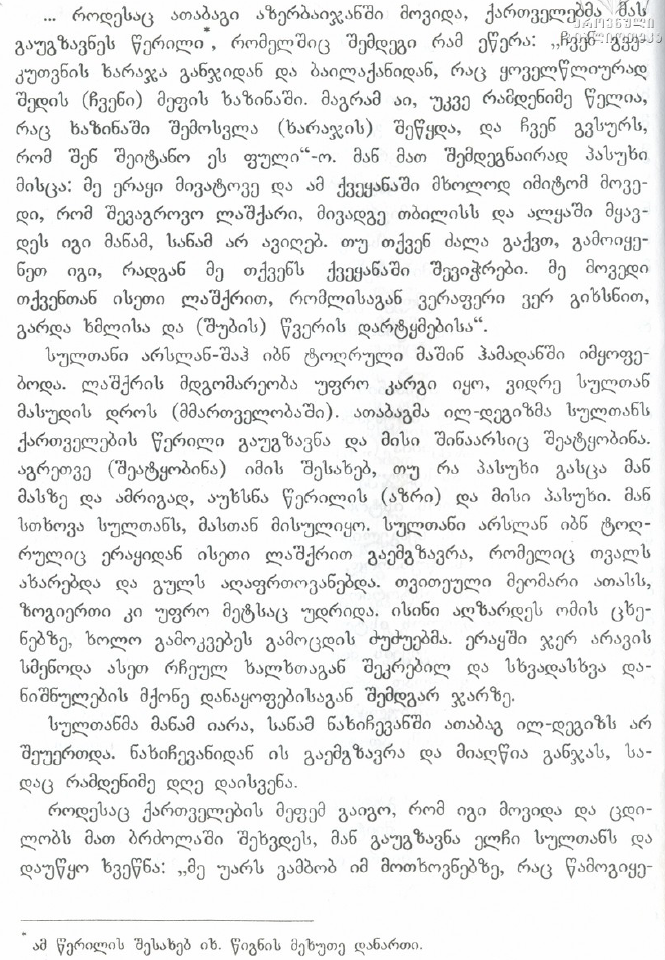 ... როდესაც ათაბაგი აზერბაიჯანში მოვიდა, ქართველებმა მას
გაუგზავნეს წერილი*, რომელშიც შემდეგი რამ ეწერა: „ჩვენ გვე-
კუთვნის ხარაჯა განჯიდან და ბაილაქანიდან, რაც ყოველწლიურად
შედის (ჩვენი) მეფის ხაზინაში. მაგრამ აი, უკვე რამდენიმე წელია,
რაც ხაზინაში შემოსვლა (ხარაჯის) შეწყდა, და ჩვენ გვსურს,
რომ შენ შეიტანო ეს ფული“-ო. მან მათ შემდეგნაირად პასუხი
მისცა: მე ერაყი მივატოვე და ამ ქვეყანაში მხოლოდ იმიტომ მოვე-
დი, რომ შევაგროვო ლაშქარი, მივადგე თბილისს და ალყაში მყავ-
დეს იგი მანამ, სანამ არ ავიღებ. თუ თქვენ ძალა გაქვთ, გამოიყე-
ნეთ იგი, რადგან მე თქვენს ქვეყანაში შევიჭრები. მე მოვედი
თქვენთან ისეთი ლაშქრით, რომლისაგან ვერაფერი ვერ გიხსნით,
გარდა ხმლისა და (შუბის) წვერის დარტყმებისა“.
სულთანი არსლან-შაჰ იბნ ტოღრული მაშინ ჰამადანში იმყოფე-
ბოდა. ლაშქრის მდგომარეობა უფრო კარგი იყო, ვიდრე სულთან
მასუდის დროს (მმართველობაში). ათაბაგმა ილ-დეგიზმა სულთანს
ქართველების წერილი გაუგზავნა და მისი შინაარსიც შეატყობინა.
აგრეთვე (შეატყობინა) იმის შესახებ, თუ რა პასუხი გასცა მან
მასზე და ამრიგად, აუხსნა წერილის (აზრი) და მისი პასუხი. მან
სთხოვა სულთანს, მასთან მისულიყო. სულთანი არსლან იბნ ტოღ-
რულიც ერაყიდან ისეთი ლაშქრით გაემგზავრა, რომელიც თვალს
ახარებდა და გულს აღაფრთოვანებდა. თვითეული მეომარი ათასს,
ზოგიერთი კი უფრო მეტსაც უდრიდა. ისინი აღზარდეს ომის ცხე-
ნებზე, ხოლო გამოკვებეს გამოცდის ძუძუებმა. ერაყში ჯერ არავის
სმენოდა ასეთ რჩეულ ხალხთაგან შეკრებილ და სხვადასხვა და-
ნიშნულების მქონე დანაყოფებისაგან შემდგარ ჯარზე.
სულთანმა მანამ იარა, სანამ ნახიჩევანში ათაბაგ ილ-დეგიზს არ
შეუერთდა. ნახიჩევანიდან ის გაემგზავრა და მიაღწია განჯას, სა-
დაც რამდენიმე დღე დაისვენა.
როდესაც ქართველების მეფემ გაიგო, რომ იგი მოვიდა და ცდი-
ლობს მათ ბრძოლაში შეხვდეს, მან გაუგზავნა ელჩი სულთანს და
დაუწყო ხვეწნა: „მე უარს ვამბობ იმ მოთხოვნებზე, რაც წამოგიყე-
* ამ წერილის შესახებ იხ. წიგნის მეხუთე დანართი.